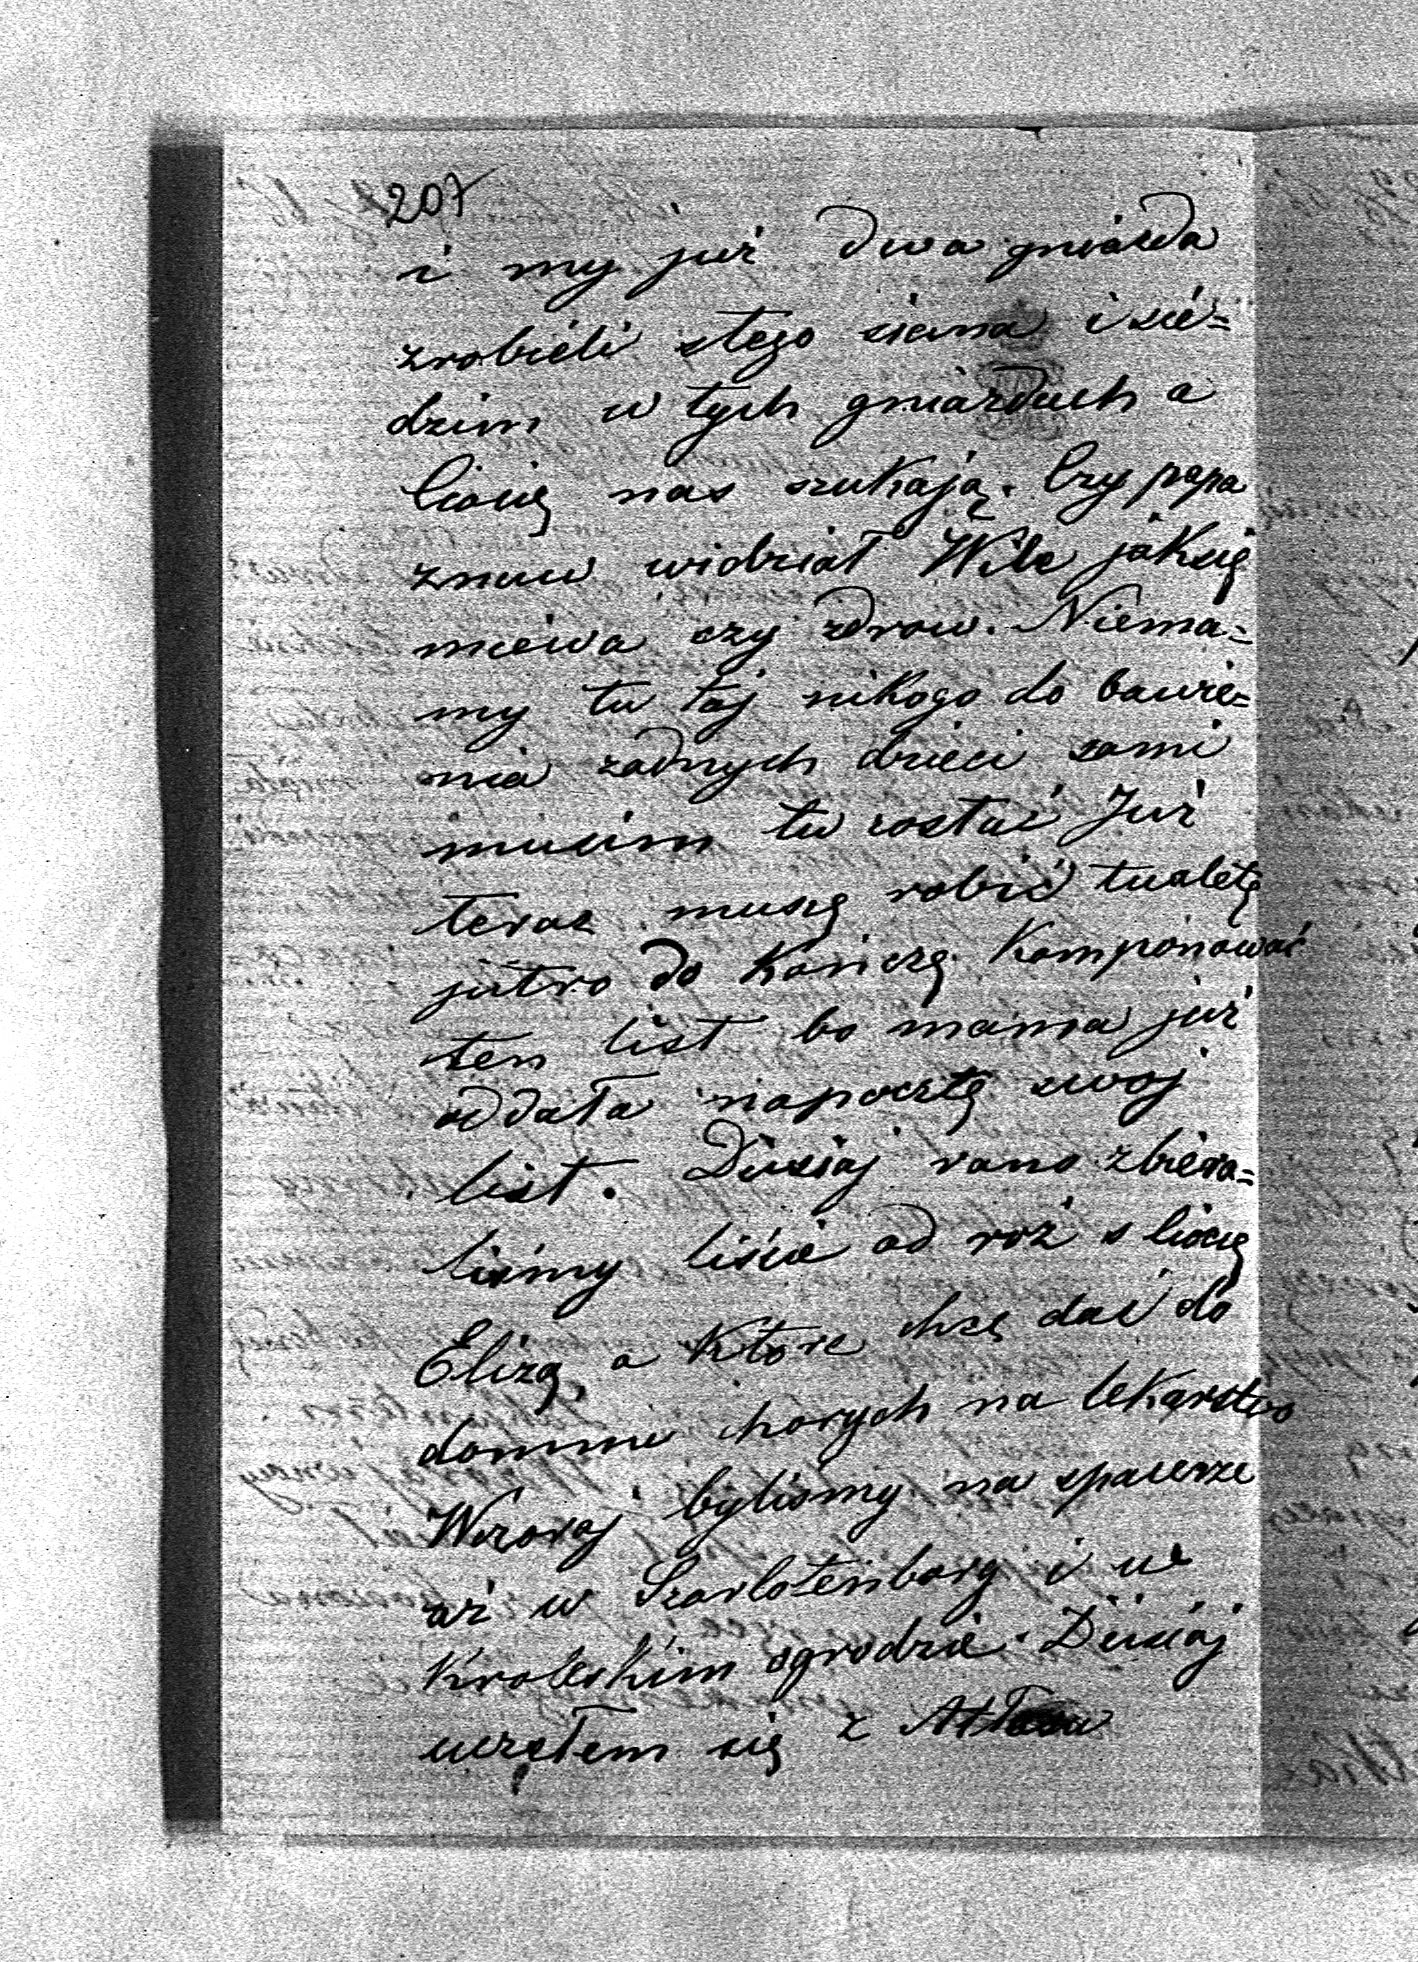 207
i my już dwa gniazda
zrobieli stego siana i sie=
dzim w tych gniazdach a
Ciocią nas szukają. Czy papa
znuw widział Wile jaksię
miewa czy zdrow. Niema=
my tu taj nikogo do bawie=
nia żadnych dzieci sami
musim tu zostać Już
teraz muszę robić tualetę
jutro do Kończę Komponować
ten list bo mama już
oddała napocztę swoj
list. Dzisiaj rano zbiera=
liśmy liście od roż s Ciocią
Elizą a Ktore chcę dać do
dommu chorych na lekarstwo
Wczoraj byliśmy na spacerze
aż w Szarlotenburg i w
Kroleskim ogrodzie. Dzisiaj
uczełem się z